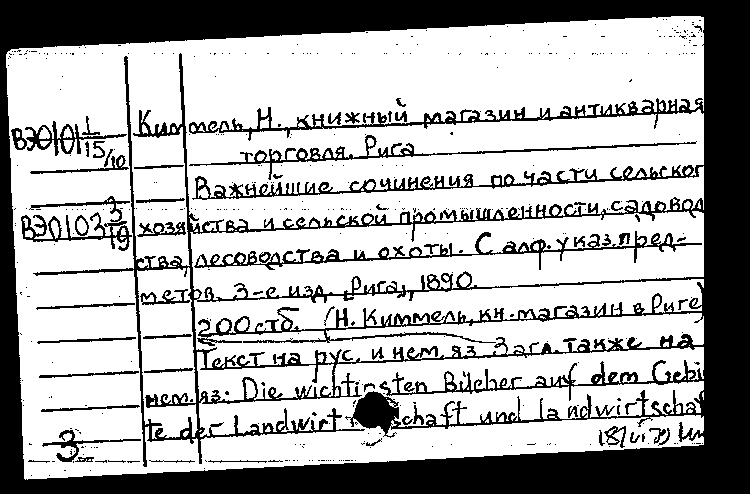 ВЭ0101 1/15/10
Киммель, Н., книжный магазин и антикварная
торговля. Рига
Важнейшие сочинения по части сельског
ВЭ0103 3/19
хозяйства и сельской промышленности, садовод
ства, лесоводства и охоты. С алф. указ. пред-
метов. 3-е изд. [Рига], 1890.
200 стб. (Н. Киммель, кн. магазин в Риге)
Текст на рус. и нем. яз. Загл. также на
нем. яз: Die wichtigsten Bücher auf dem Gebi
te der Landwirtschaft und landwirtscha
3